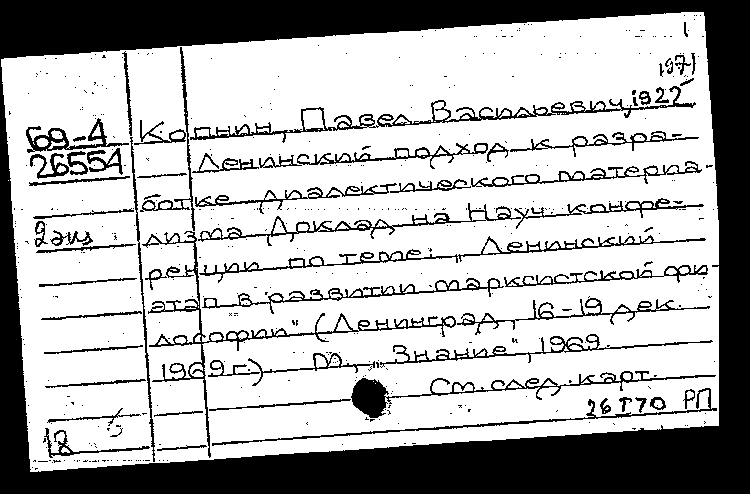 1
1971
69-4 Копнин, Павел Васильевич, 1922
26554 Ленинский подход к разра-
ботке диалектического материа-
2 экз лизма Доклад на Науч. конфе-
ренции по теме: „Ленинский
этап в развитии марксистской фи-
лософии" (Ленинград, 16-19 дек.
1969 г.). М., „Знание", 1969.
См. след. карт.
26 I 70 РП
18 б